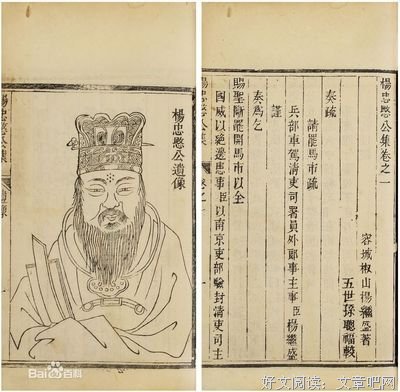 楊忠愍公集卷之一
容城椒山楊繼盛著
五世孫聰福較
奏疏
請罷馬市疏
兵部車駕清吏司署員外郎事主事臣楊繼盛
謹
奏爲乞
賜聖斷罷開馬市以全
國威以絕邊患事臣以南京吏部驗封清吏司主
楊忠愍公集 卷之一
楊忠愍公遺像
楊忠愍公集 遺像
Bai百科
好文阅读：文章吧网